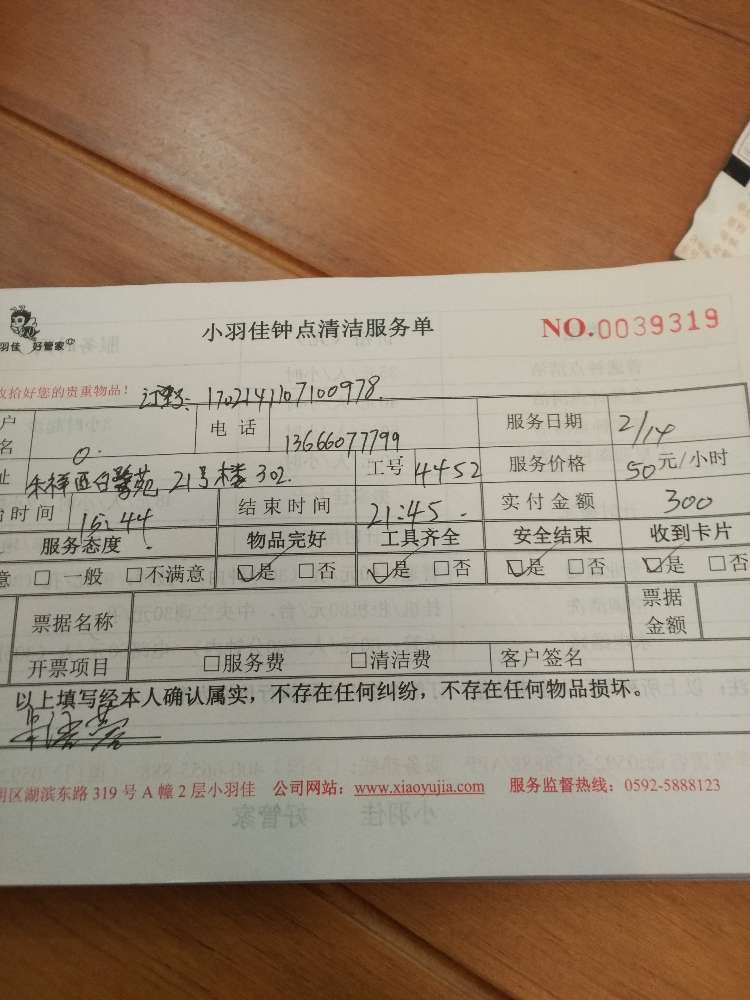 小羽佳钟点清洁服务单
NO.0039319
羽佳 好管家
收拾好您的贵重物品! 订单号: 1702141107100978
户名 电话 13666077799 服务日期 2/14
址 西 苑 21号楼302 工号 4452 服务价格 50元/小时
时间 15:44 结束时间 21:45. 实付金额 300
服务态度 物品完好 工具齐全 安全结束 收到卡片
意 □ 一般 □不满意 ☑是 □否 ☑是 □否 ☑是 □否 ☑是 □否
票据名称 票据金额
开票项目 □服务费 □清洁费 客户签名
以上填写经本人确认属实，不存在任何纠纷，不存在任何物品损坏。
明区湖滨东路 319 号 A 幢 2 层小羽佳 公司网站：www.xiaoyujia.com 服务监督热线：0592-5888123